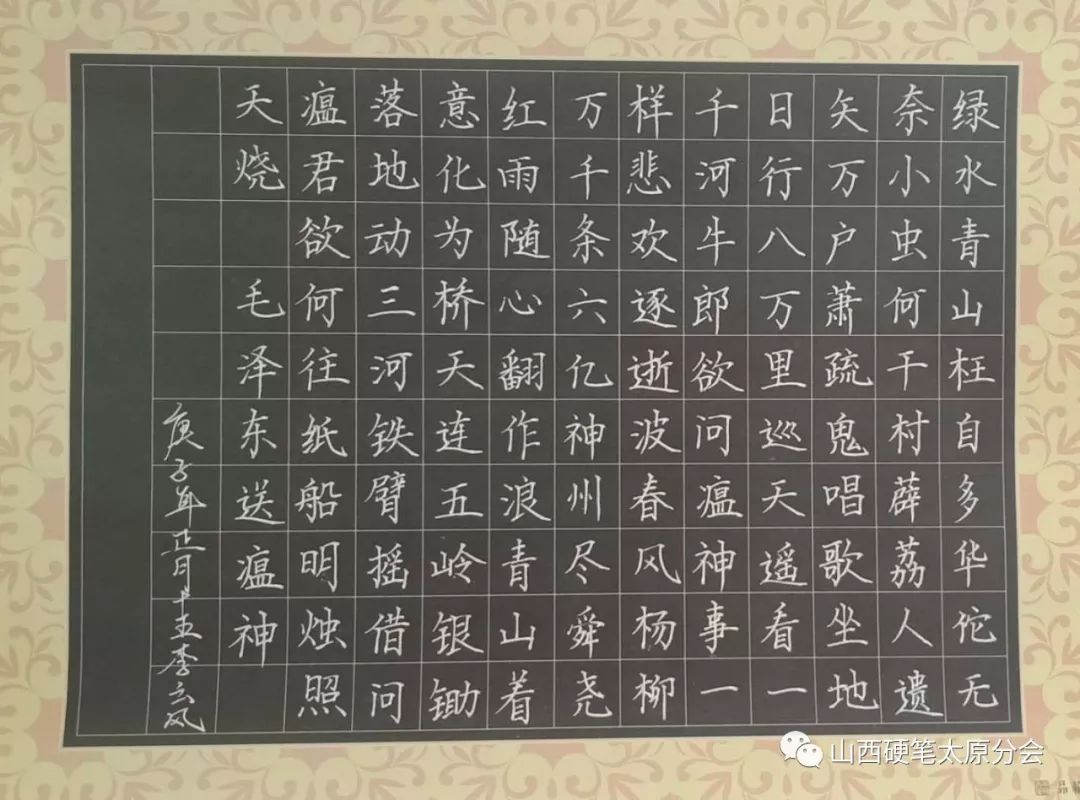 绿水青山枉自多华佗无
奈小虫何千村薜荔人遗
矢万户萧疏鬼唱歌坐地
日行八万里巡天遥看一
千河牛郎欲问瘟神事一
样悲欢逐逝波春风杨柳
万千条六亿神州尽舜尧
红雨随心翻作浪青山着
意化为桥天连五岭银锄
落地动三河铁臂摇借问
瘟君欲何往纸船明烛照
天烧 毛泽东送瘟神
庚子年正月十五李云凤
山西硬笔太原分会